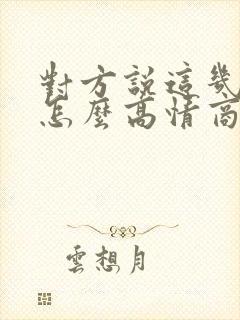 對方說這幾
怎麼高情商
雲想月